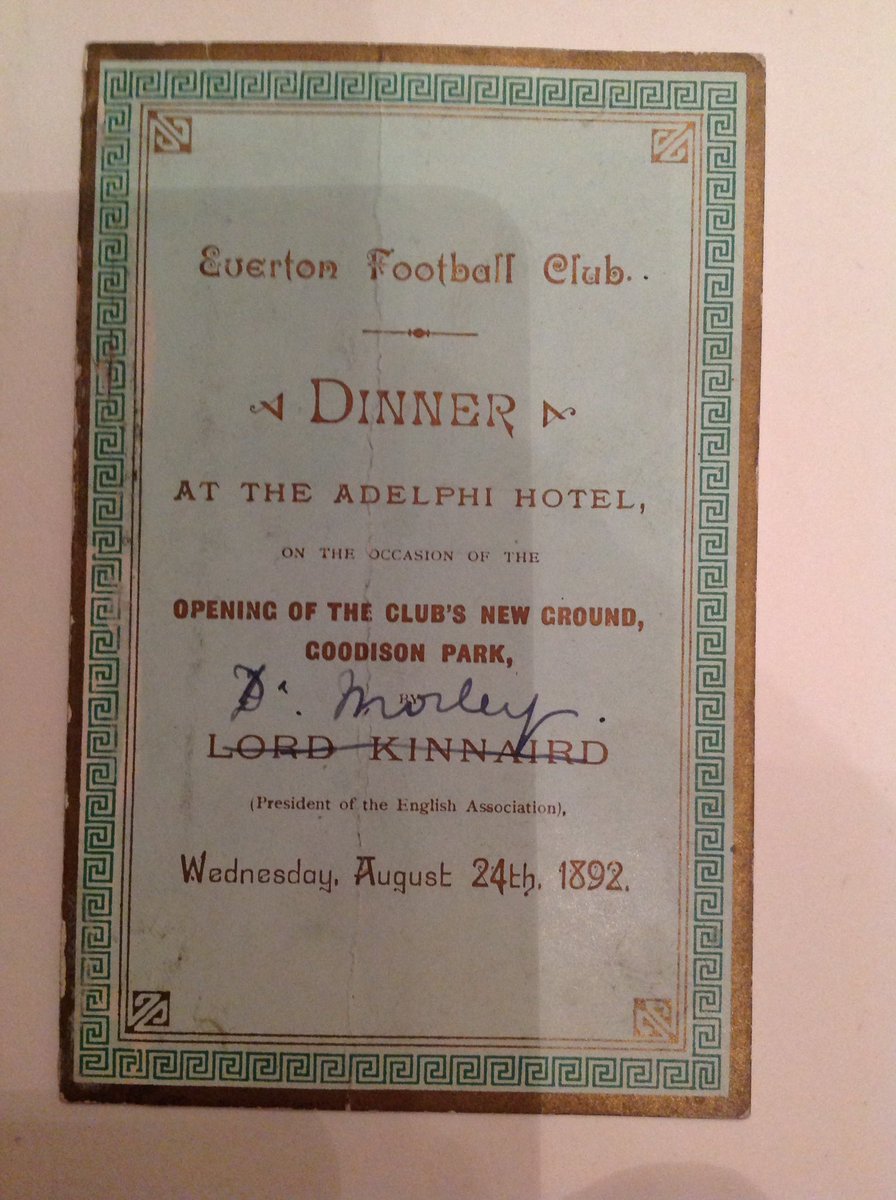 Everton Football Club.
DINNER
AT THE ADELPHI HOTEL,
ON THE OCCASION OF THE
OPENING OF THE CLUB'S NEW GROUND,
GOODISON PARK,
BY
Dr. Morley.
LORD KINNAIRD
(President of the English Association),
Wednesday, August 24th, 1892.